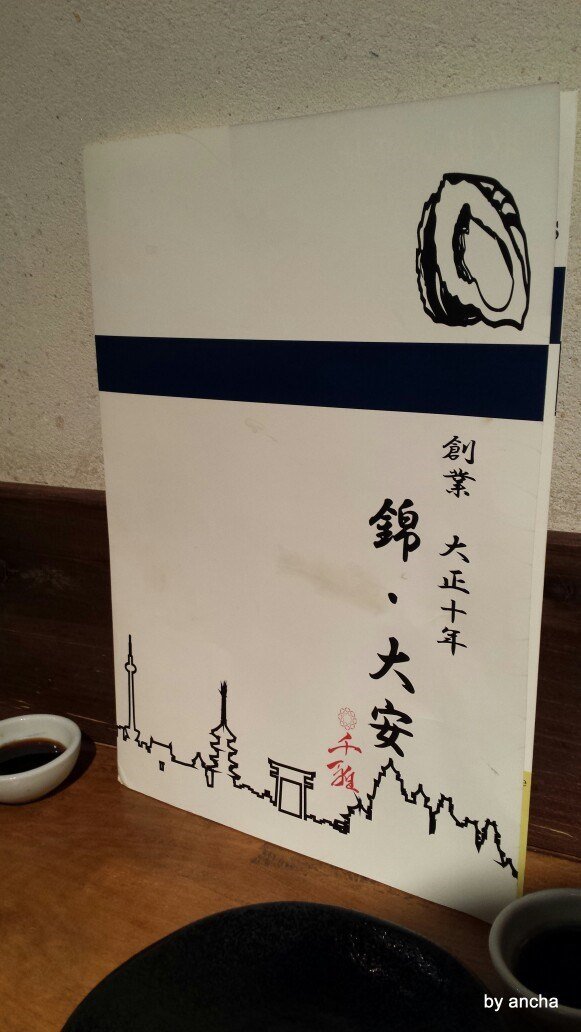 創業 大正十年
錦・大安
千雅
by ancha